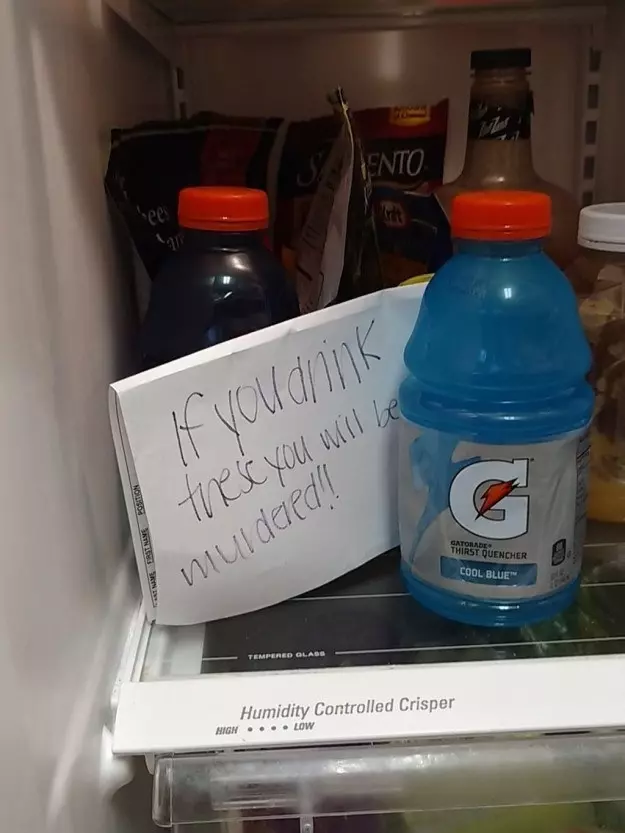 SARGENTO
Kraft
If you drink
these you will be
murdered!!
LAST NAME FIRST NAME POSITION
G
GATORADE®
THIRST QUENCHER
COOL BLUE™
TEMPERED GLASS
Humidity Controlled Crisper
HIGH •••• LOW